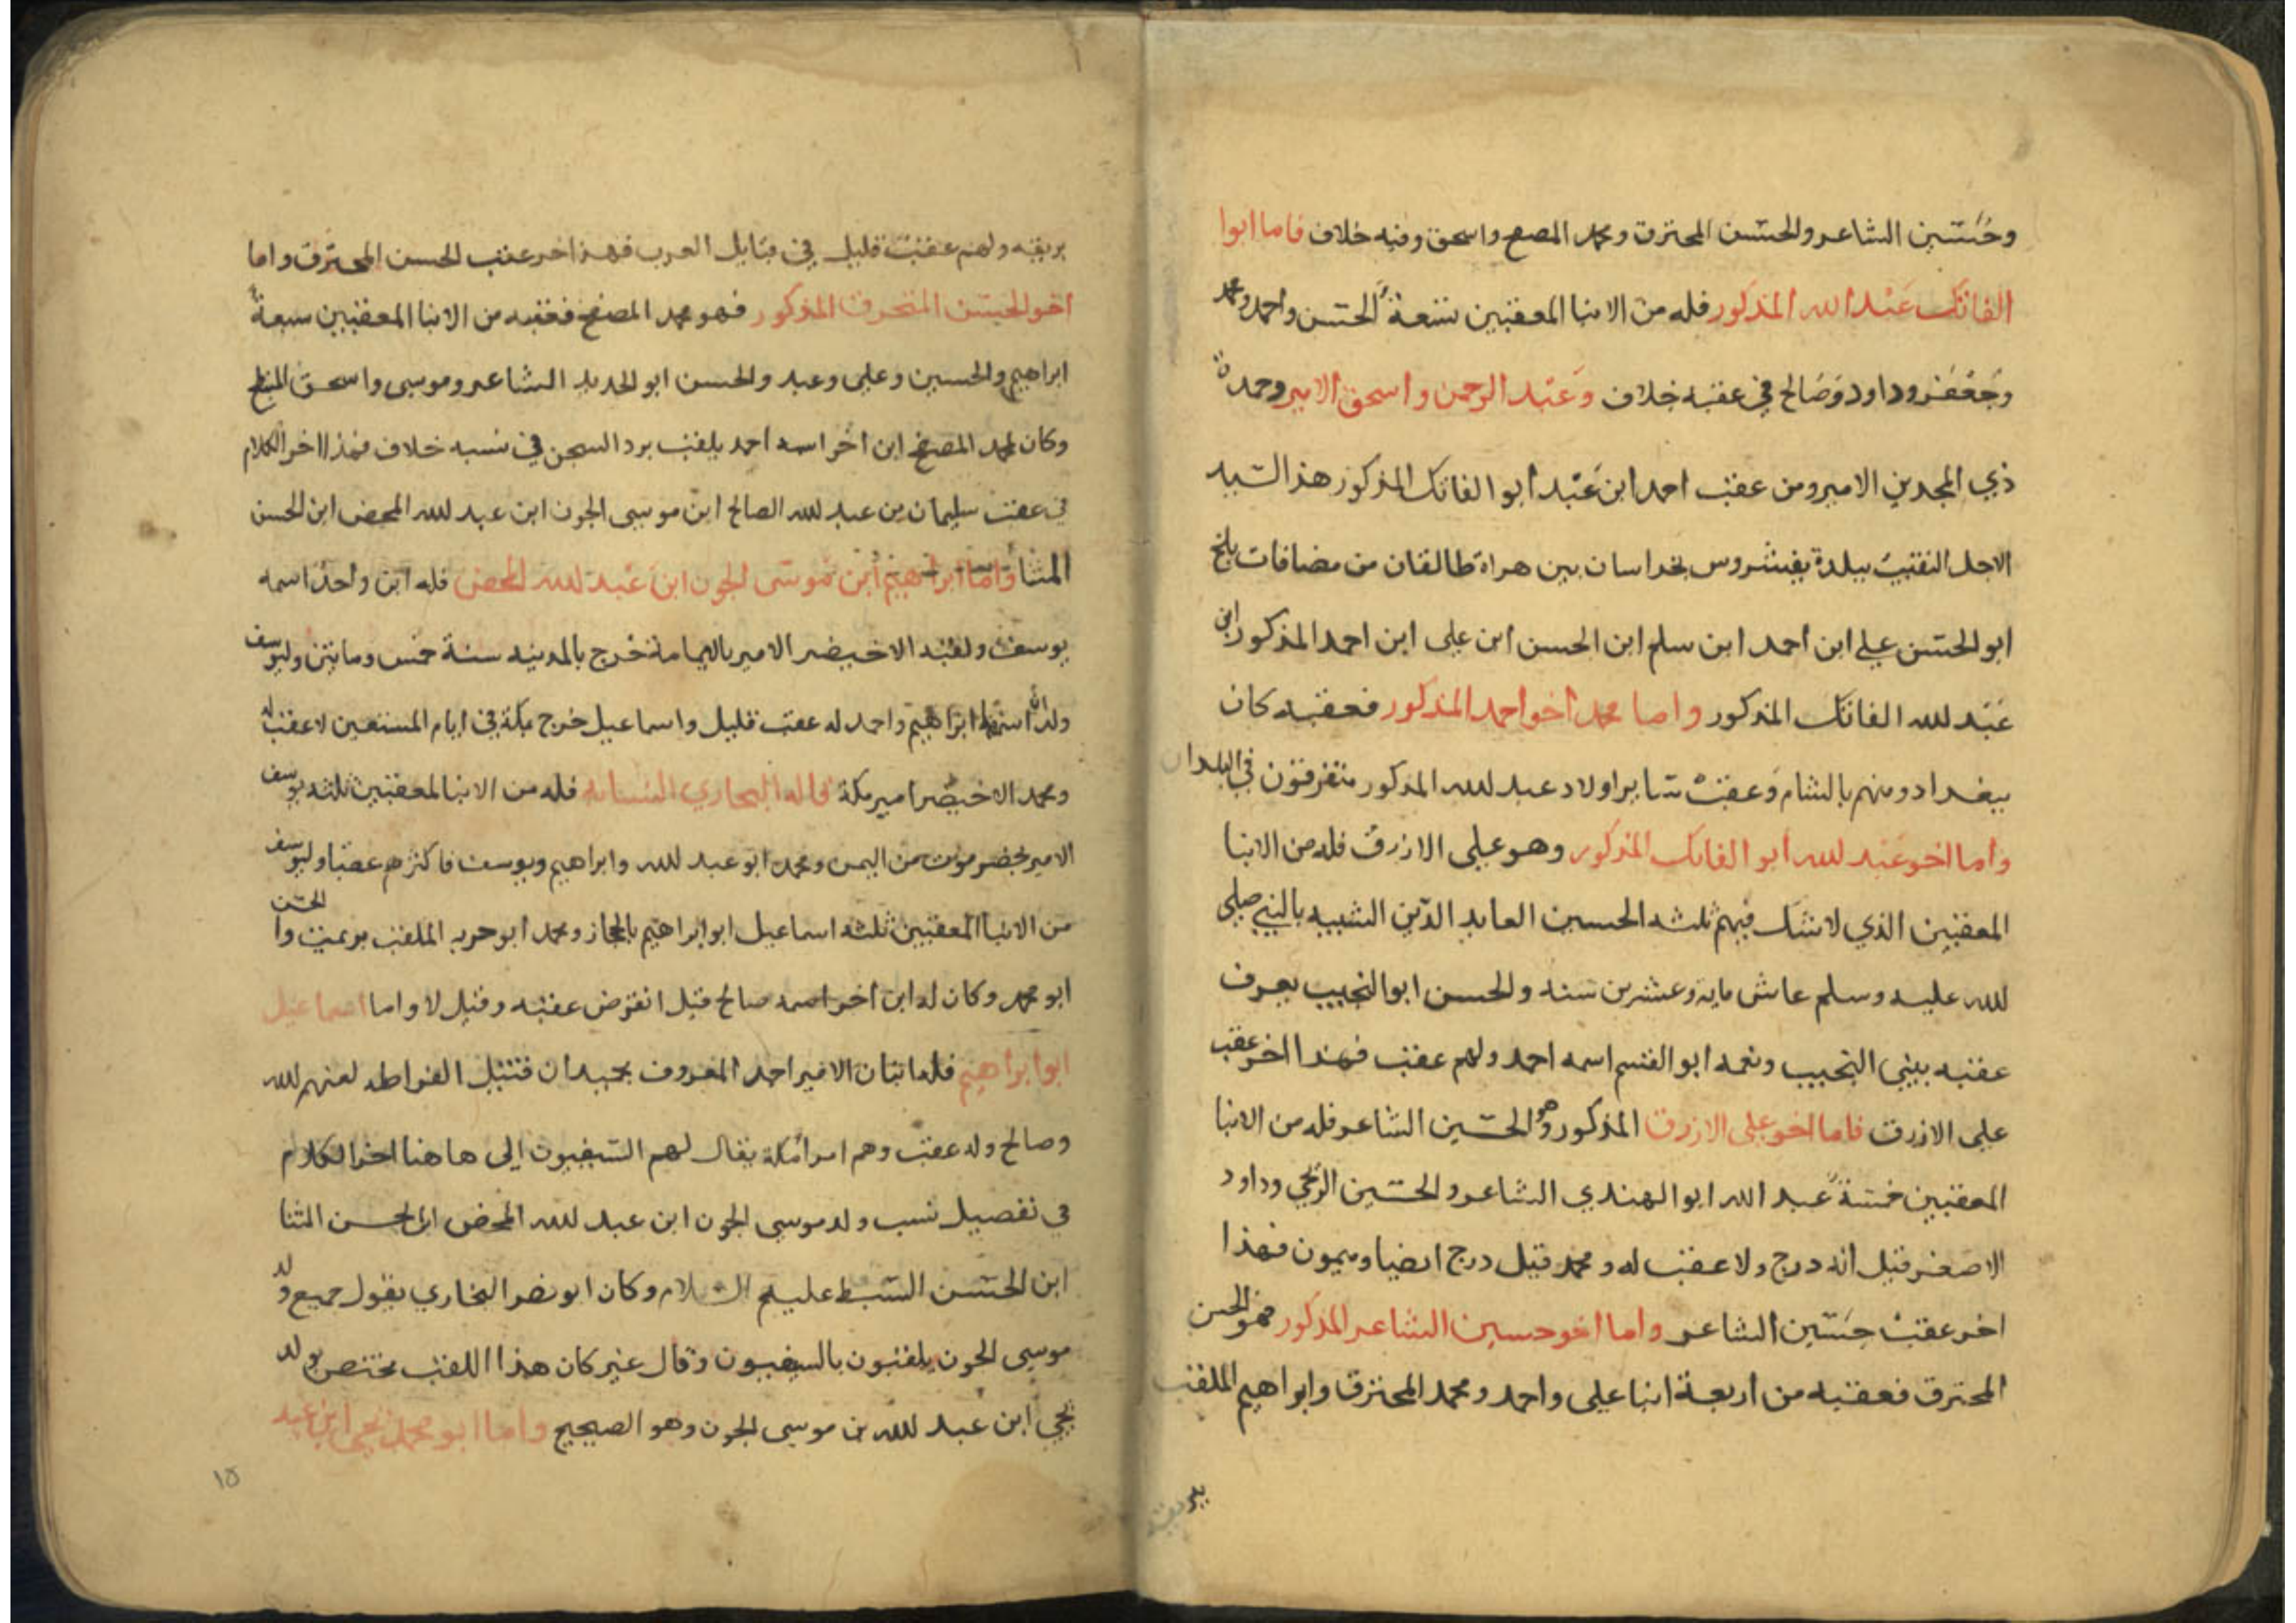 وحسين الشاعر والحسن المحترق ومحمد المصفح واسحق وفيه خلاف فاما ابوا
الفاتك عبد الله المذكور فله من الابنا المعقبين تسعة الحسن واحمد ومحمد
وجعفر وداود وصالح في عقبه خلاف وعبد الرحمن واسحق الامير وحمدة
ذي المجدين الامير ومن عقب احمد ابن عبد ابوا الفاتك المذكور هذ السيد
الاجل النقيب ببلدة بخراسان بين هراة طالقان من مضافات بلخ
ابو الحسن علي ابن احمد ابن سلم ابن الحسن ابن علي ابن احمد المذكور ابن
عبد لله الفاتك المذكور واما محمد اخو احمد المذكور فعقبه كان
ببغداد ومنهم بالشام وعقب سايرا ولاد عبد لله المذكور متفرقون في البلدان
واما اخو عبد لله ابو الفاتك المذكور وهو علي الازرق فله من الابنا
المعقبين الذي لا شك فيهم ثلثه الحسين العابد الدين الشبيه بالنبي صلى
لله عليه وسلم عاش مايه وعشرين سنه والحسن ابو النجيب يعرف
عقبه ببني النجيب ونعمه ابو القسم اسمه احمد ولهم عقب فهذا اخر عقب
علي الازرق فاما اخو علي الازرق المذكور وهو الحسين الشاعر فله من الابنا
المعقبين خمسة عبد الله ابو الهندي الشاعر والحسين الزنجي وداود
الاصغر قيل انه درج ولا عقب له ومحمد قيل درج ايضا وميمون فهذا
اخر عقب حسين الشاعر واما اخو حسين الشاعر المذكور فهو الحسن
المحترق فعقبه من اربعة ابنا علي واحمد ومحمد المحترق وابراهيم الملقب
بريقه
بريقه ولهم عقب قليل في قبايل العرب فهذا اخر عقب الحسن المحترق واما
اخو الحسن المتحرق المذكور فهو محمد المصفح فعقبه من الابنا المعقبين سبعة
ابراهيم والحسين وعلي وعبد والحسن ابو الحديد الشاعر وموسى واسحق
وكان لمحمد المصفح ابن اخر اسمه احمد يلقب برد السجن في نسبه خلاف فهذا اخر الكلام
في عقب سليمان بن عبد لله الصالح ابن موسى الجون ابن عبد لله المحض ابن الحسن
المثنا واما ابراهيم ابن موسى الجون ابن عبد لله المحض فله ابن واحد اسمه
يوسف ولقبه الاخيضر الامير باليمامة خرج بالمدينه سنة خمس وماتين وليوسف
ولدان اسمهما ابراهيم واحمد له عقب قليل واسماعيل خرج بمكة في ايام المستعين لا عقب له
ومحمد الاخيضر امير مكة قاله البخاري النسابه فله من الابنا المعقبين ثلثه يوسف
الامير بحضرموت من اليمن ومحمد ابو عبد لله وابراهيم ويوسف فاكثرهم عقبا وليوسف
من الابنا المعقبين ثلثه اسماعيل ابو ابراهيم بالحجاز ومحمد ابو حربه الملقب والحسن
ابو محمد وكان له ابن اخر اسمه صالح قيل انقرض عقبه وقيل لا واما اسماعيل
ابوا ابراهيم فله ابنان الامير احمد المعروف بحميدان قتيل القرامطه لعنهم لله
وصالح وله عقب وهم امرا مكة يقال لهم السيفيون الى هاهنا اخر الكلام
في تفصيل نسب ولد موسى الجون ابن عبد لله المحض ابن الحسن المثنا
ابن الحسن السبط عليهم السلام وكان ابو نصر البخاري يقول جميع ولد
موسى الجون يلقبون بالسيفيون وقال غيره كان هذا اللقب مختص بولد
يحيى ابن عبد لله بن موسى الجون وهو الصحيح واما ابو محمد يحيى ابن عبد
١٥